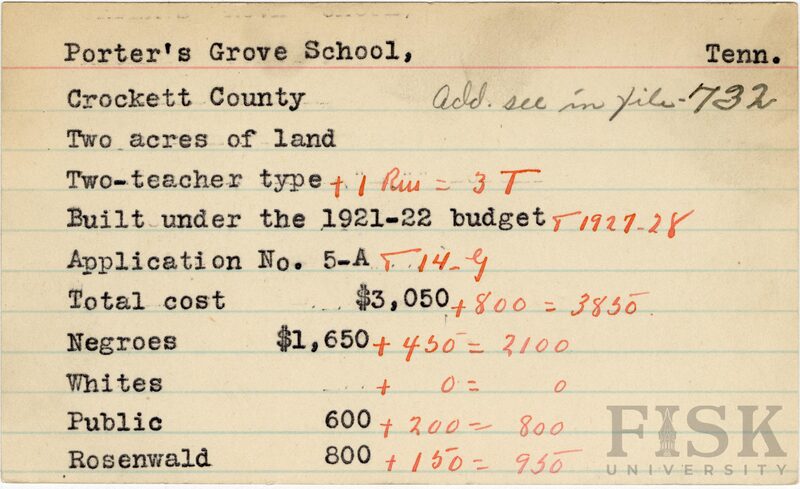 Porter's Grove School, Tenn.
Crockett County Add. see in file-732
Two acres of land
Two-teacher type + 1 Rm = 3 T
Built under the 1921-22 budget + 1927-28
Application No. 5-A + 14-G
Total cost $3,050 + 800 = 3850
Negroes $1,650 + 450 = 2100
Whites + 0 = 0
Public 600 + 200 = 800
Rosenwald 800 + 150 = 950
FISK
UNIVERSITY